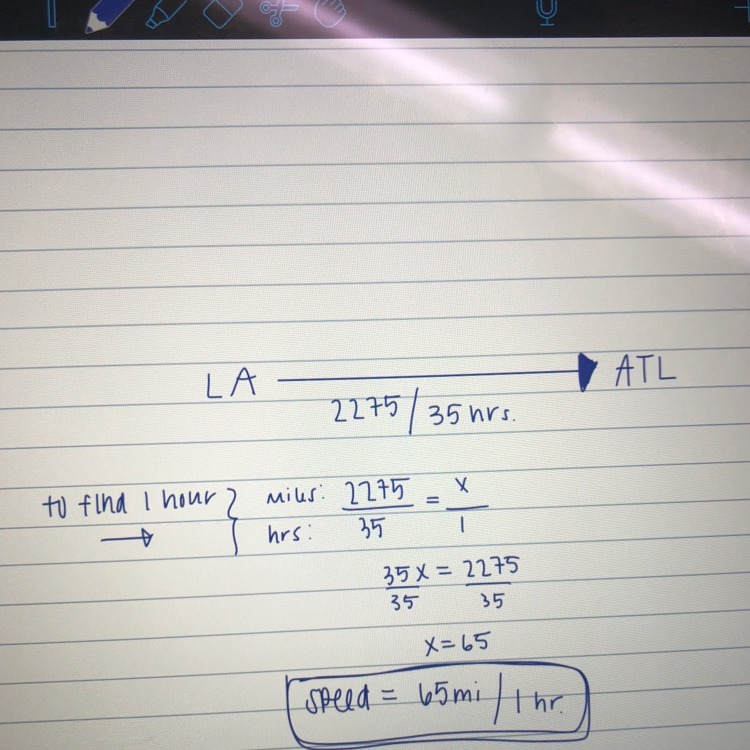 LA → ATL
2275/35 hrs.
to find 1 hour } miles: 2275/35 = x/1
→ hrs:
35x/35 = 2275/35
x=65
speed = 65mi/1 hr.